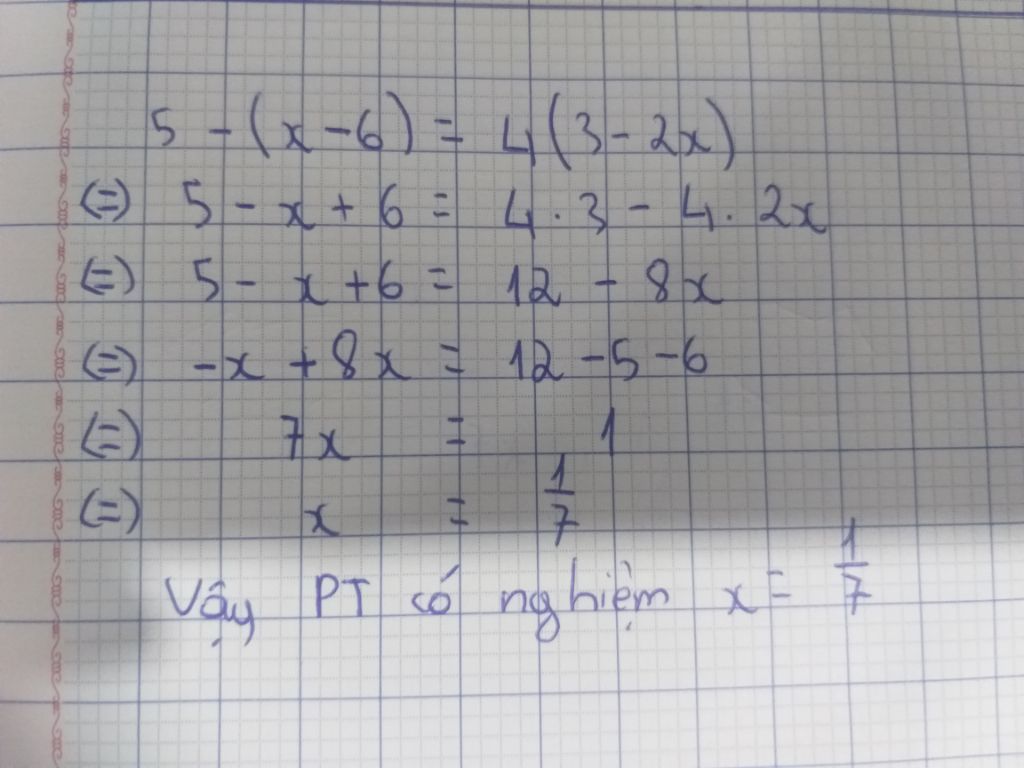 5 - (x - 6) = 4(3 - 2x)
(=) 5 - x + 6 = 4 . 3 - 4 . 2x
(=) 5 - x + 6 = 12 - 8x
(=) -x + 8x = 12 - 5 - 6
(=) 7x = 1
(=) x = 1/7
Vậy PT có nghiệm x = 1/7